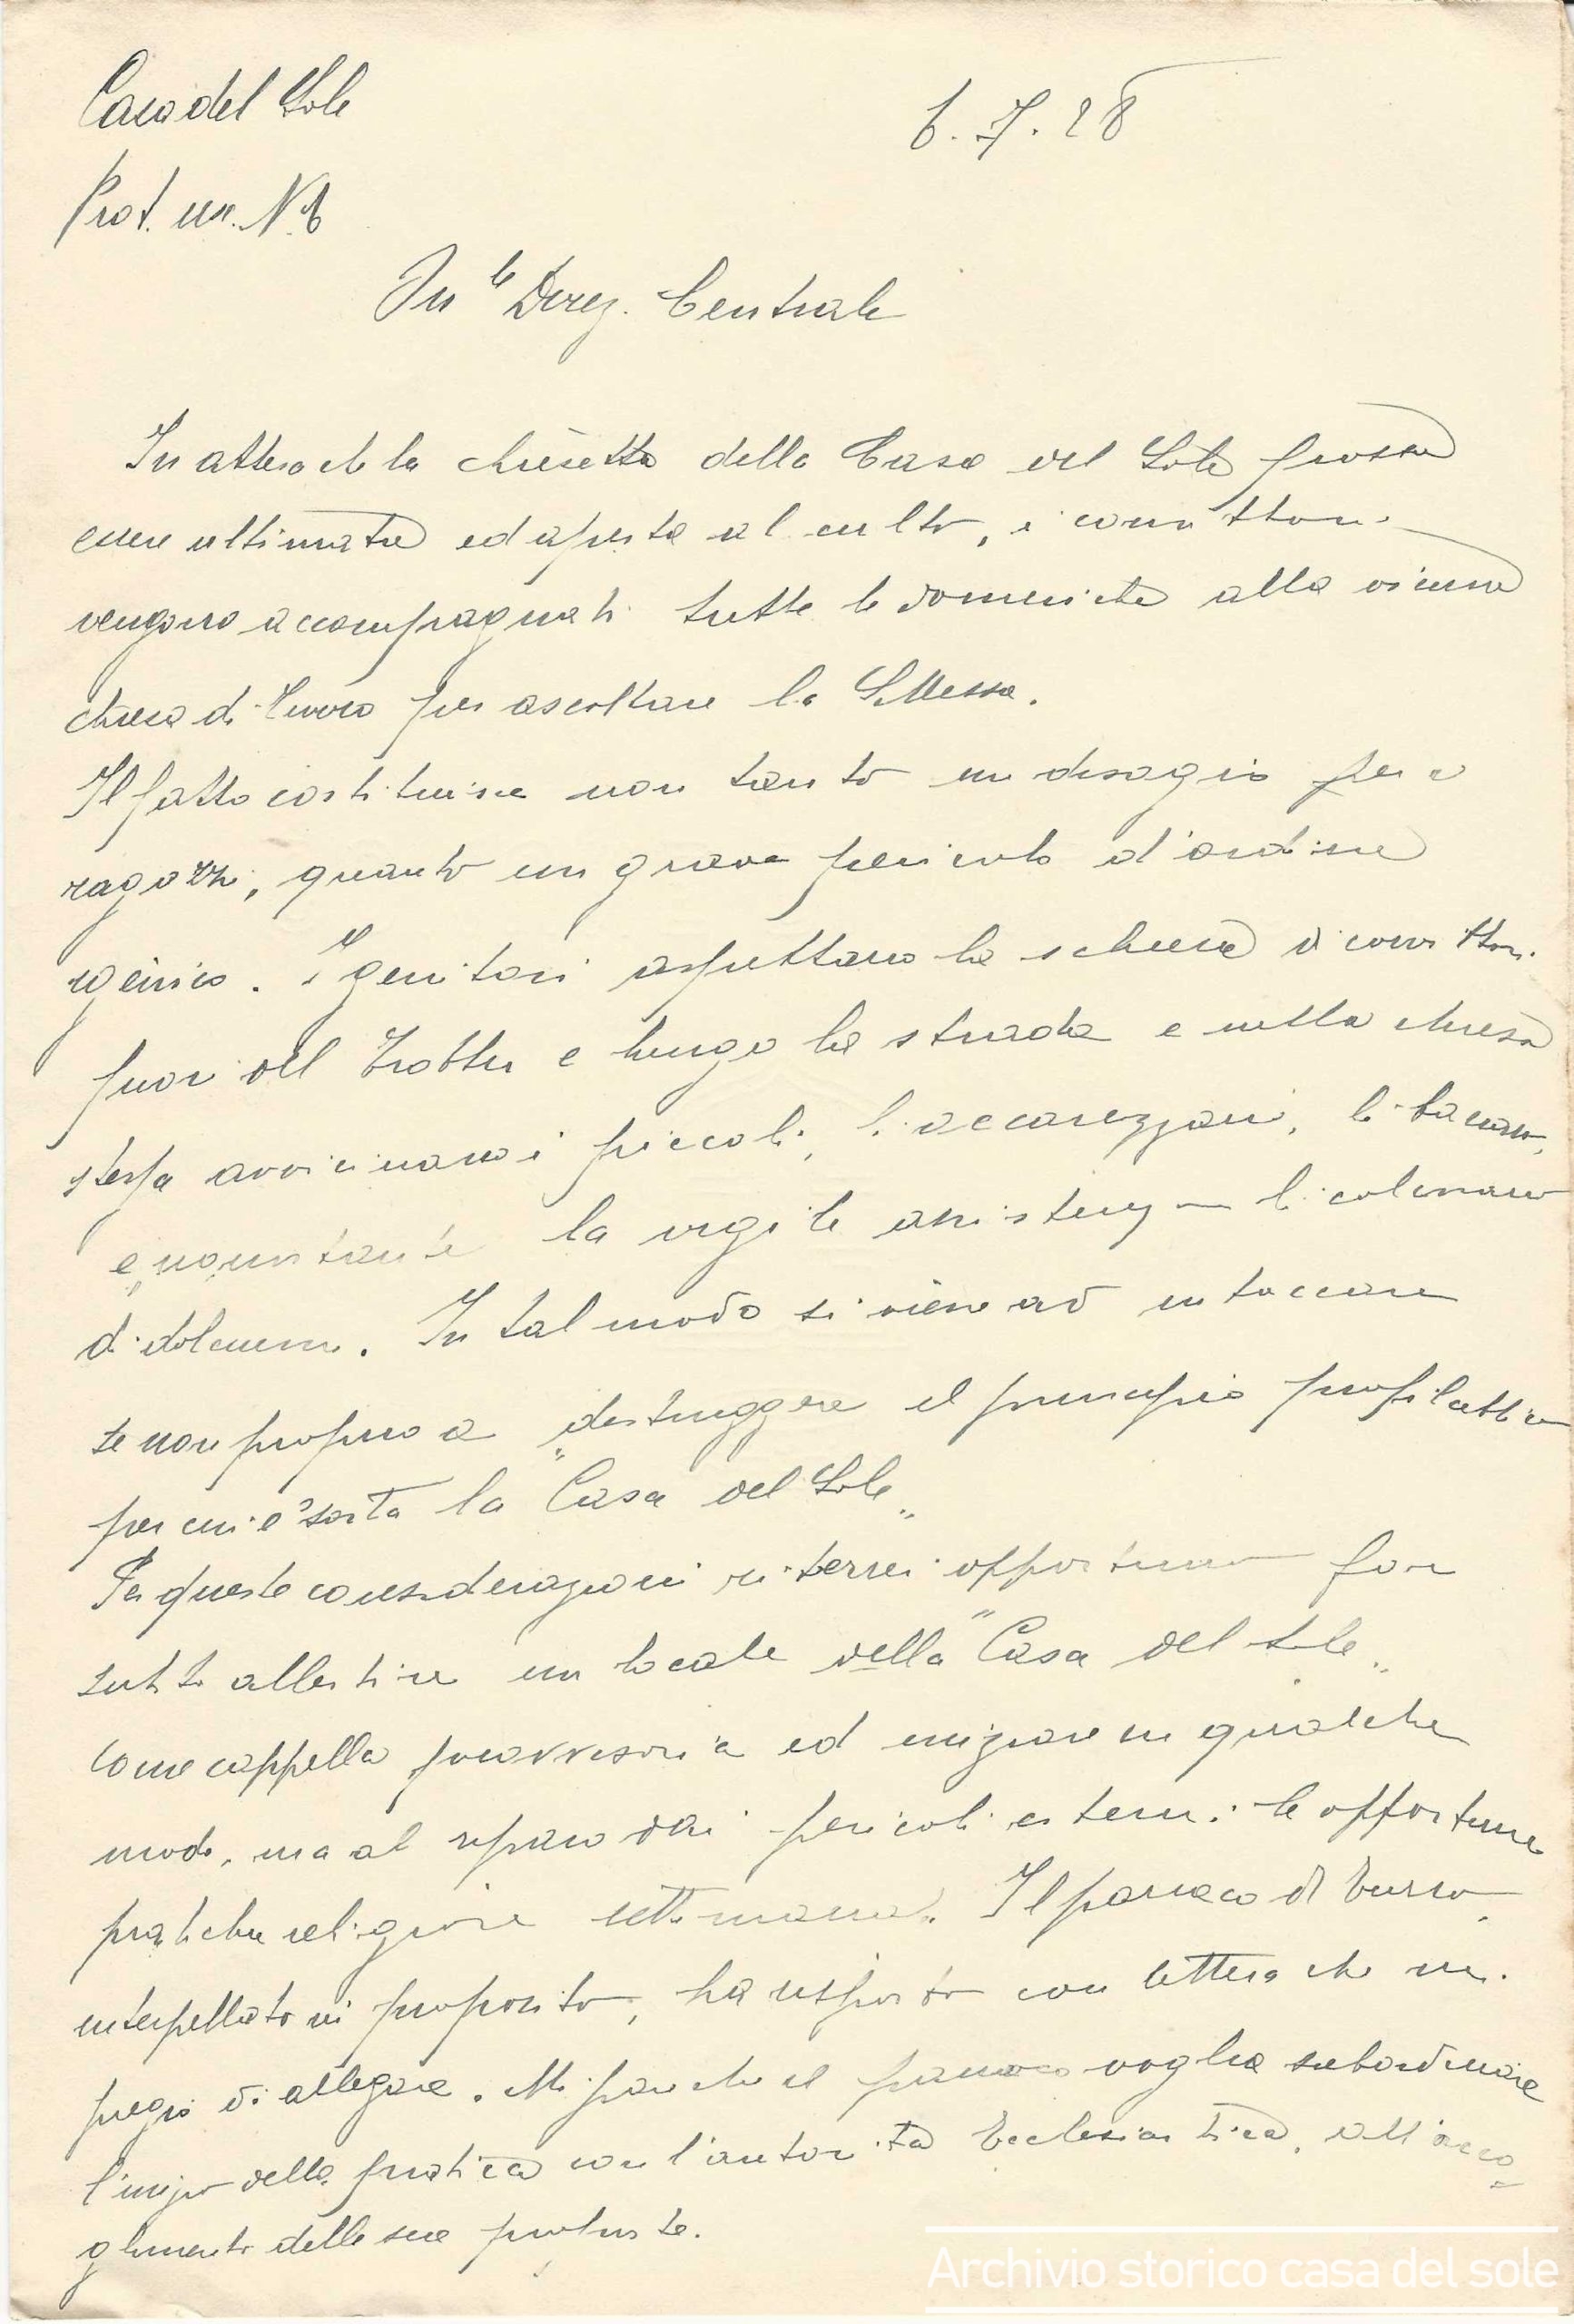 Casa del Sole
6.7.28
Prot. ris. N. 6
On.le Direz. Centrale
In attesa che la chiesetta della Casa del Sole possa
essere ultimata ed aperta al culto, i convittori
vengono accompagnati tutte le domeniche alla vicina
chiesa di Turro per ascoltare la S. Messa.
Il fatto costituisce non tanto un disagio per i
ragazzi, quanto un grave pericolo d'ordine
igienico. I genitori aspettano la schiera di convittori
fuori del Trotter e lungo la strada e nella chiesa
stessa avvicinano i piccoli, li accarezzano, li baciano,
e, nonostante la vigile assistenza li colmano
di dolciumi. In tal modo si viene ad intaccare
se non proprio a distruggere il principio profilattico
per cui è sorta la "Casa del Sole"
Per queste considerazioni riterrei opportuno far
subito allestire un locale della "Casa del Sole"
come cappella provvisoria ed iniziare in qualche
modo, ma al riparo dai pericoli esterni le opportune
pratiche religiose settimanali. Il parroco di Turro,
interpellato in proposito, ha risposto con lettera che mi
pregio di allegare. Mi pare che il parroco voglia subordinare
l'inizio della pratica con l'autorità Ecclesiastica, all'acco-
glimento delle sue proposte.
Archivio storico casa del sole